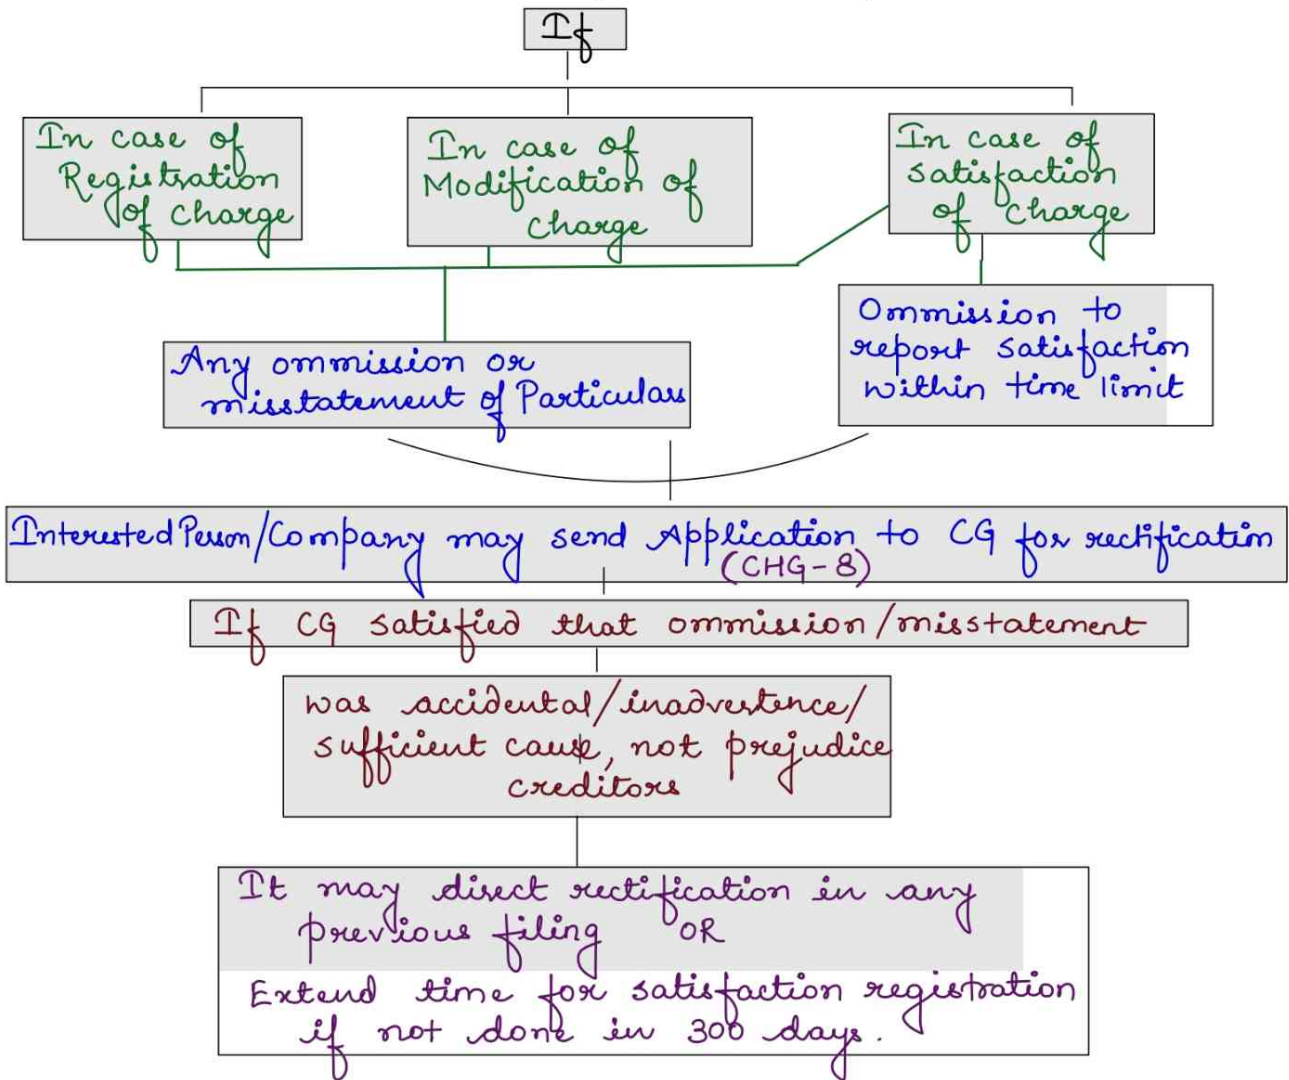 If
In case of
Registration
of charge
In case of
Modification of
charge
In case of
satisfaction
of charge
Any ommission or
misstatement of Particulars
Ommission to
report satisfaction
within time limit
Interested Person/Company may send Application to CG for rectification
(CHG-8)
If CG satisfied that ommission/misstatement
was accidental/inadvertence/
sufficient cause, not prejudice
creditors
It may direct rectification in any
previous filing OR
Extend time for satisfaction registration
if not done in 300 days.